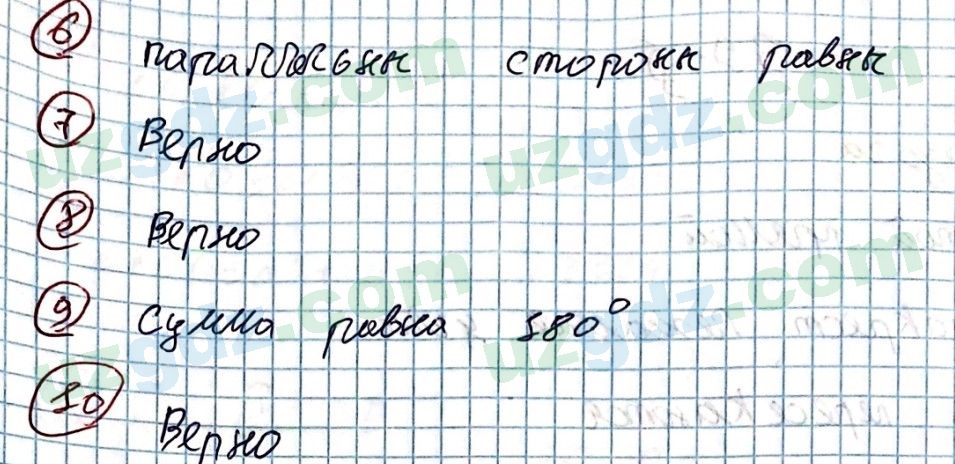 6 параллельны стороны равны
7 Верно
8 Верно
9 Сумма равна 180°
10 Верно
uzgdz.com uzgdz.com
uzgdz.com uzgdz.com